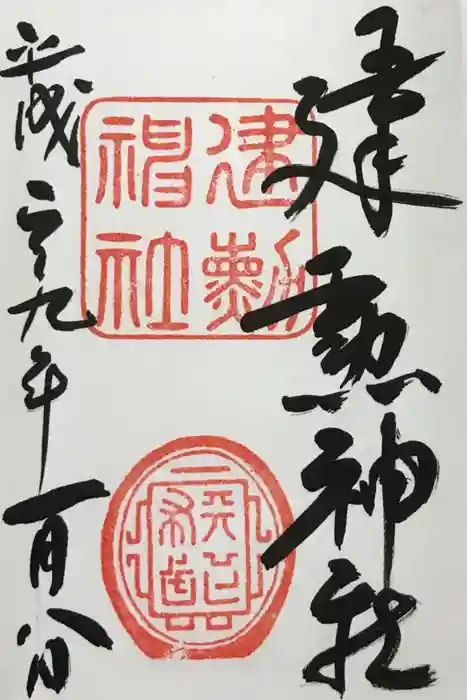 建勲神社
建勲
神社
平成二十九年一月八日